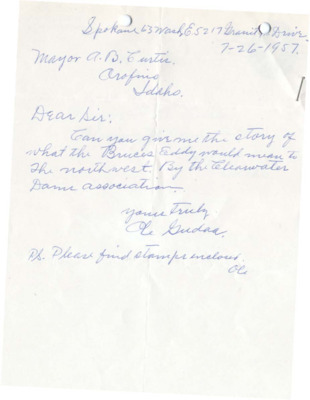 Spokane 63 Wash E5217 Granite Drive
7-26-1957.
Mayor A. B. Curtis
Orofino
Idaho.
Dear Sir:
Can you give me the story of
what the Bruces Eddy would mean to
The northwest. By the Clearwater
Dams association.
Yours Truly
Ole
Ps. Please find stamps enclosed.
Ole